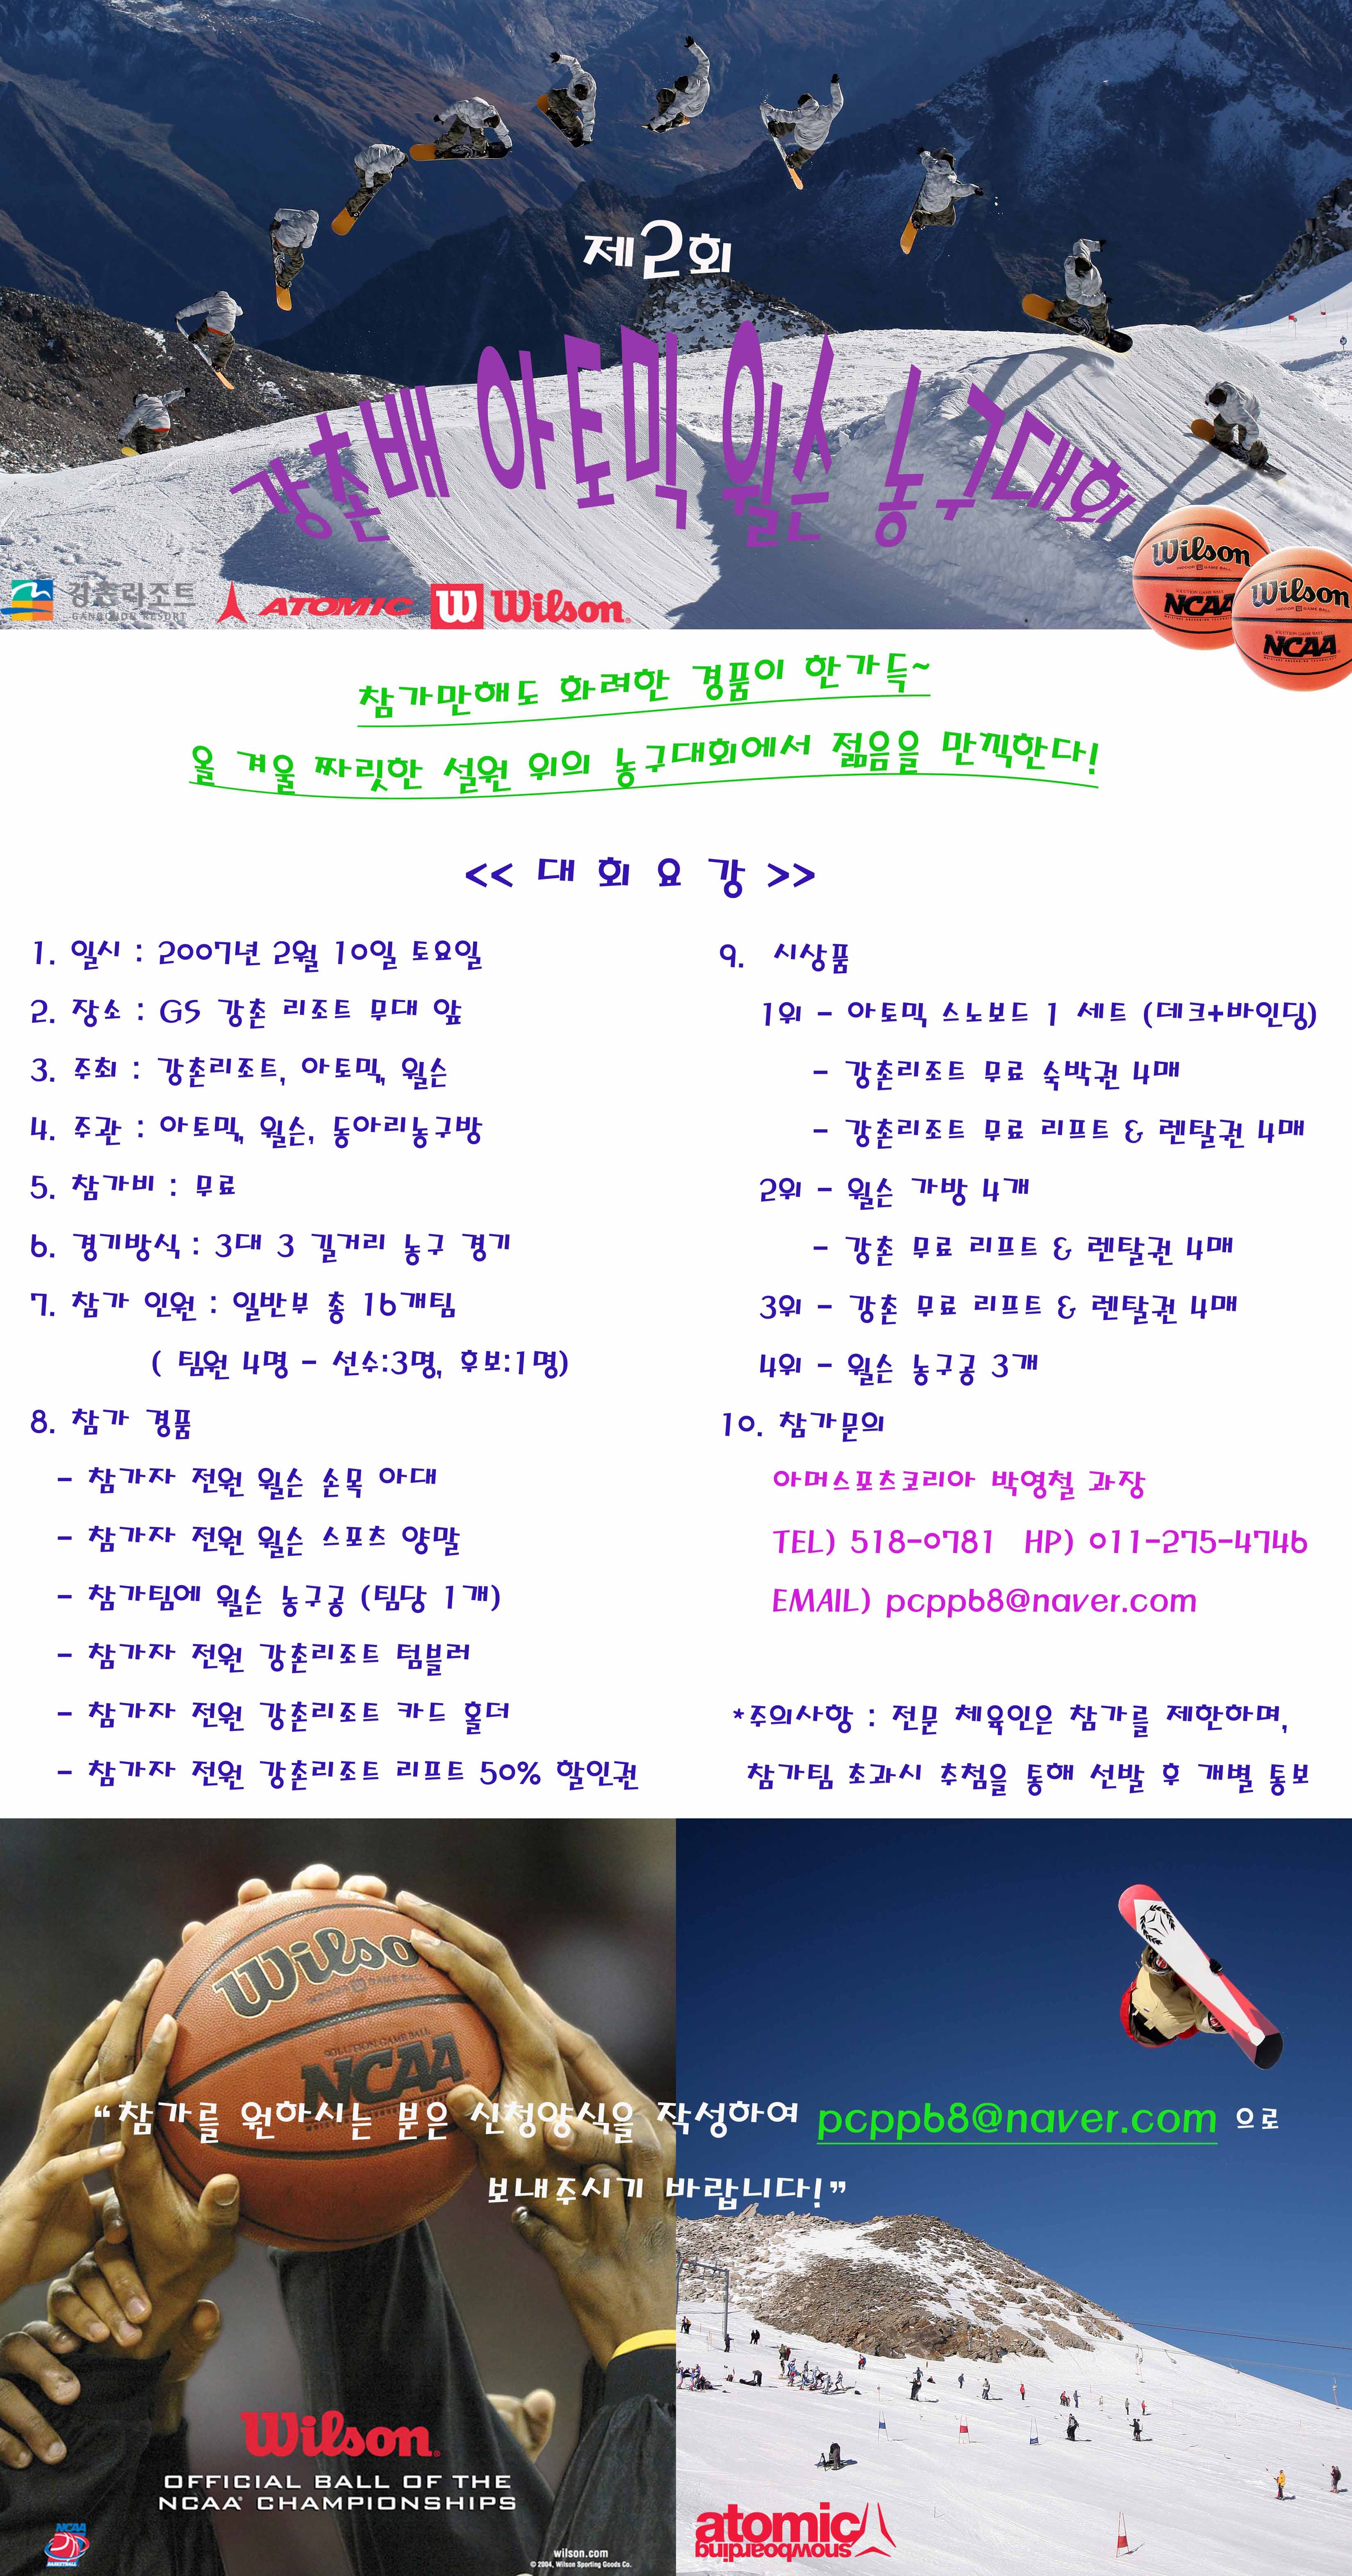 제2회
강촌배 아토믹 윌슨 농구대회
강촌리조트
GANGCHON RESORT
ATOMIC
W Wilson
Wilson
NCAA
Wilson
NCAA
참가만해도 화려한 경품이 한가득~
올 겨울 짜릿한 설원 위의 농구대회에서 젊음을 만끽한다!
<< 대 회 요 강 >>
1. 일시 : 2007년 2월 10일 토요일
2. 장소 : GS 강촌 리조트 무대 앞
3. 주최 : 강촌리조트, 아토믹, 윌슨
4. 주관 : 아토믹, 윌슨, 동아리농구방
5. 참가비 : 무료
6. 경기방식 : 3대 3 길거리 농구 경기
7. 참가 인원 : 일반부 총 16개팀
( 팀원 4명 - 선수:3명, 후보:1명)
8. 참가 경품
- 참가자 전원 윌슨 손목 아대
- 참가자 전원 윌슨 스포츠 양말
- 참가팀에 윌슨 농구공 (팀당 1개)
- 참가자 전원 강촌리조트 텀블러
- 참가자 전원 강촌리조트 카드 홀더
- 참가자 전원 강촌리조트 리프트 50% 할인권
9. 시상품
1위 - 아토믹 스노보드 1 세트 (데크+바인딩)
- 강촌리조트 무료 숙박권 4매
- 강촌리조트 무료 리프트 & 렌탈권 4매
2위 - 윌슨 가방 4개
- 강촌 무료 리프트 & 렌탈권 4매
3위 - 강촌 무료 리프트 & 렌탈권 4매
4위 - 윌슨 농구공 3개
10. 참가문의
아머스포츠코리아 박영철 과장
TEL) 518-0781 HP) 011-275-4746
EMAIL) pcpp68@naver.com
*주의사항 : 전문 체육인은 참가를 제한하며,
참가팀 초과시 추첨을 통해 선발 후 개별 통보
Wilso
SOLUTION GAME BALL
NCAA
“참가를 원하시는 분은 신청양식을 작성하여 pcpp68@naver.com 으로
보내주시기 바랍니다!”
Wilson
OFFICIAL BALL OF THE
NCAA® CHAMPIONSHIPS
NCAA
BASKETBALL
wilson.com
© 2004, Wilson Sporting Goods Co.
atomic
snowboarding